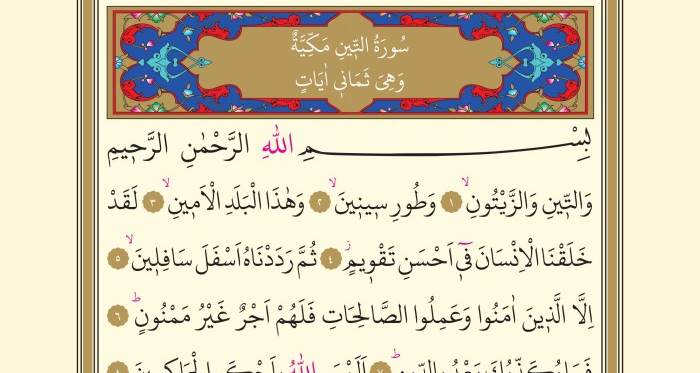 سُورَةُ التّ۪ينِ مَكِّيَّةٌ
وَهِيَ ثَمَانِيَ اٰيَاتٍ
بِسْمِ اللّٰهِ الرَّحْمٰنِ الرَّح۪يمِ
وَالتّ۪ينِ وَالزَّيْتُونِۙ ﴿١﴾ وَطُورِ س۪ين۪ينَۙ ﴿٢﴾ وَهٰذَا الْبَلَدِ الْاَم۪ينِۙ ﴿٣﴾ لَقَدْ
خَلَقْنَا الْاِنْسَانَ ف۪ٓي اَحْسَنِ تَقْو۪يمٍۘ ﴿٤﴾ ثُمَّ رَدَدْنَاهُ اَسْفَلَ سَافِل۪ينَۙ ﴿٥﴾
اِلَّا الَّذ۪ينَ اٰمَنُوا وَعَمِلُوا الصَّالِحَاتِ فَلَهُمْ اَجْرٌ غَيْرُ مَمْنُونٍۜ ﴿٦﴾
فَمَا يُكَذِّبُكَ بَعْدُ بِالدّ۪ينِۜ ﴿٧﴾ اَلَيْسَ اللّٰهُ بِاَحْكَمِ الْحَاكِم۪ينَ ﴿٨﴾